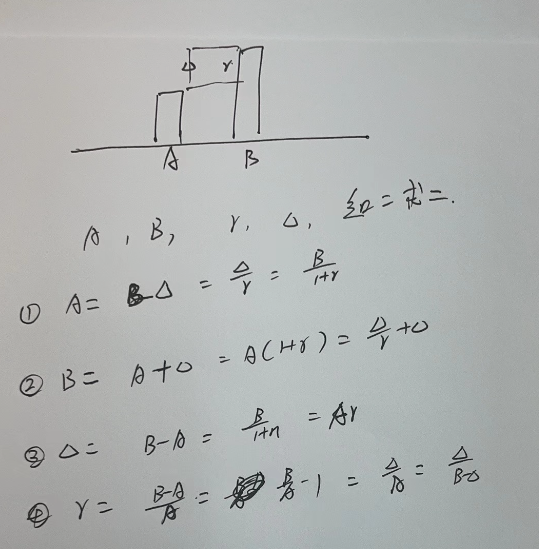 Δ r
A B
A , B, r. Δ, 知二求二.
① A = B-Δ = Δ/r = B/(1+r)
② B = A+Δ = A(1+r) = Δ/r+Δ
③ Δ = B-A = B/(1+r) = Ar
④ r = (B-A)/A = B/A-1 = Δ/A = Δ/(B-Δ)